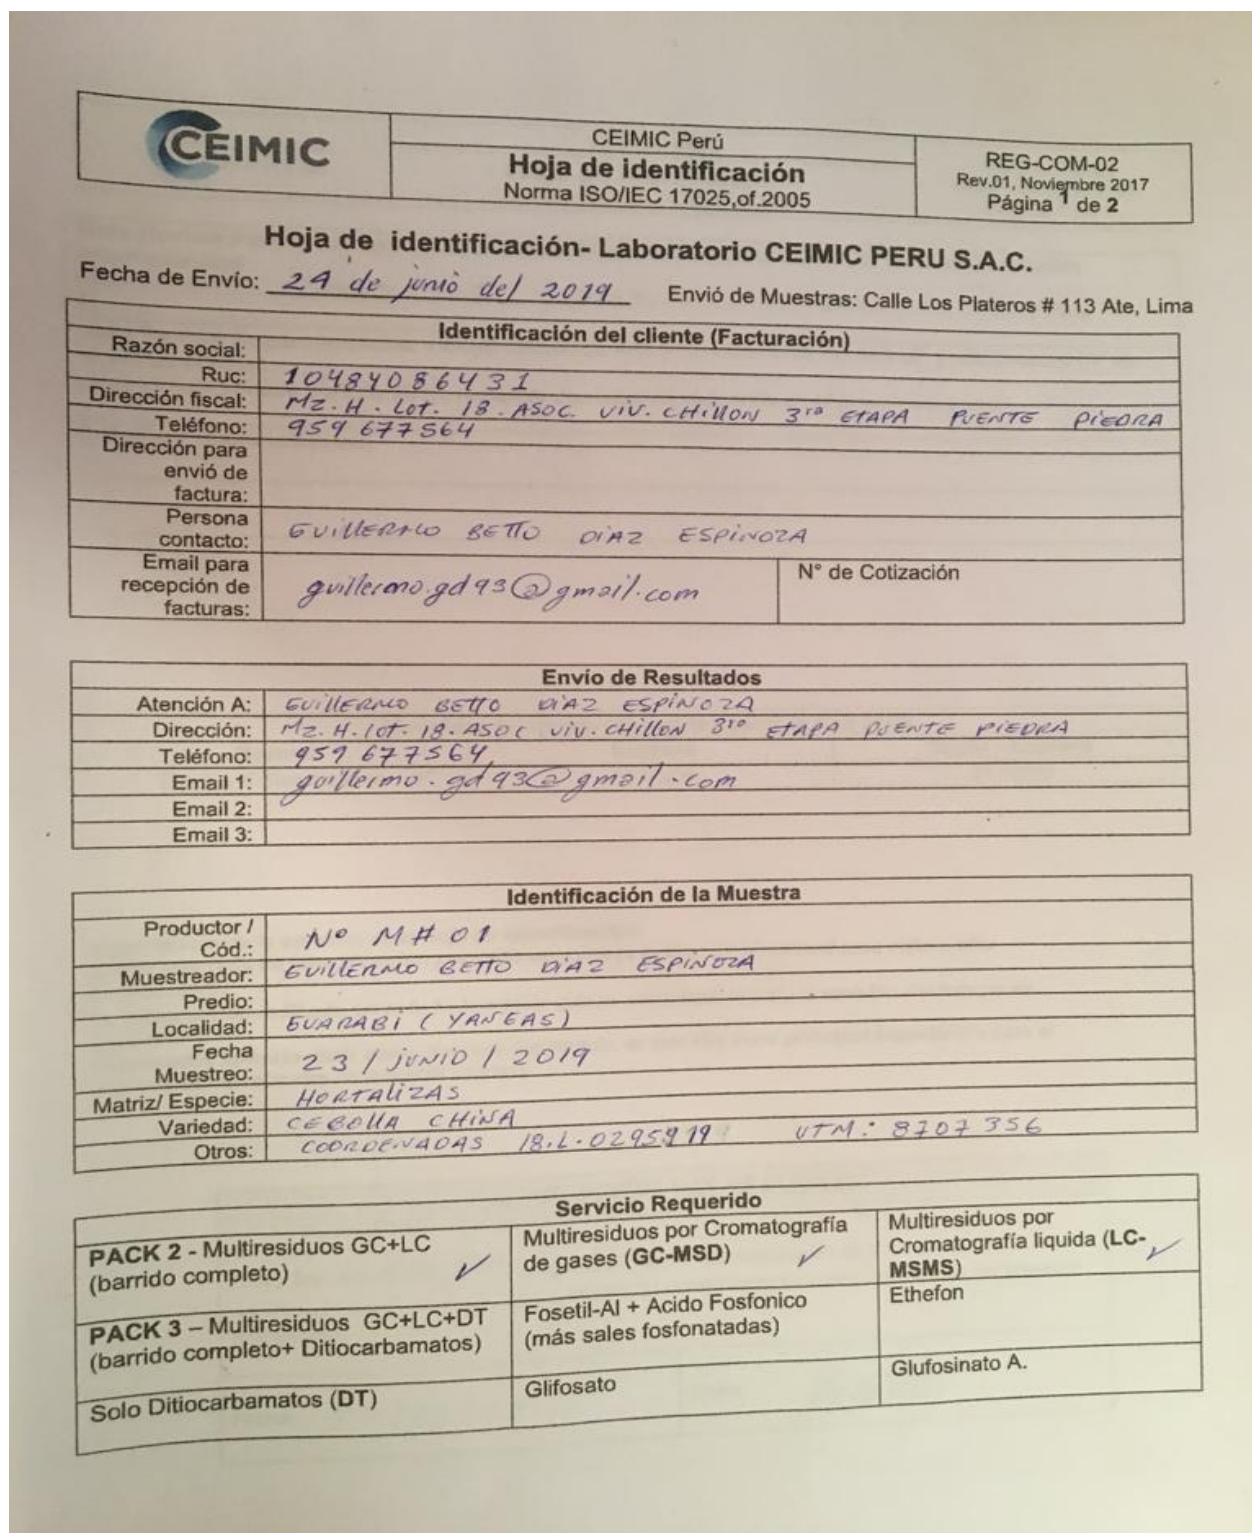 CEIMIC
CEIMIC Perú
Hoja de identificación
Norma ISO/IEC 17025,of.2005
REG-COM-02
Rev.01, Noviembre 2017
Página 1 de 2
Hoja de identificación- Laboratorio CEIMIC PERU S.A.C.
Fecha de Envío: 24 de junio del 2019 Envió de Muestras: Calle Los Plateros # 113 Ate, Lima
Identificación del cliente (Facturación)
Razón social:
Ruc: 10484086431
Dirección fiscal: Mz. H. Lot. 18. ASOC. VIV. CHILLON 3ra ETAPA PUENTE PIEDRA
Teléfono: 959 677564
Dirección para
envió de
factura:
Persona
contacto: GUILLERMO BETTO DIAZ ESPINOZA
Email para
recepción de
facturas: guillermo.gd93@gmail.com
N° de Cotización
Envío de Resultados
Atención A: GUILLERMO BETTO DIAZ ESPINOZA
Dirección: Mz. H. LOT. 18. ASOC VIV. CHILLON 3ra ETAPA PUENTE PIEDRA
Teléfono: 959 677564
Email 1: guillermo.gd93@gmail.com
Email 2:
Email 3:
Identificación de la Muestra
Productor /
Cód.: N° M# 01
Muestreador: GUILLERMO BETTO DIAZ ESPINOZA
Predio:
Localidad: GUARABI (YANGAS)
Fecha
Muestreo: 23 / JUNIO / 2019
Matriz/ Especie: HORTALIZAS
Variedad: CEBOLLA CHINA
Otros: COORDENADAS 18.L.0295919 UTM: 8707356
Servicio Requerido
PACK 2 - Multiresiduos GC+LC
(barrido completo) ✓
Multiresiduos por Cromatografía
de gases (GC-MSD) ✓
Multiresiduos por
Cromatografía liquida (LC-
MSMS) ✓
PACK 3 – Multiresiduos GC+LC+DT
(barrido completo+ Ditiocarbamatos)
Fosetil-Al + Acido Fosfonico
(más sales fosfonatadas)
Ethefon
Solo Ditiocarbamatos (DT)
Glifosato
Glufosinato A.